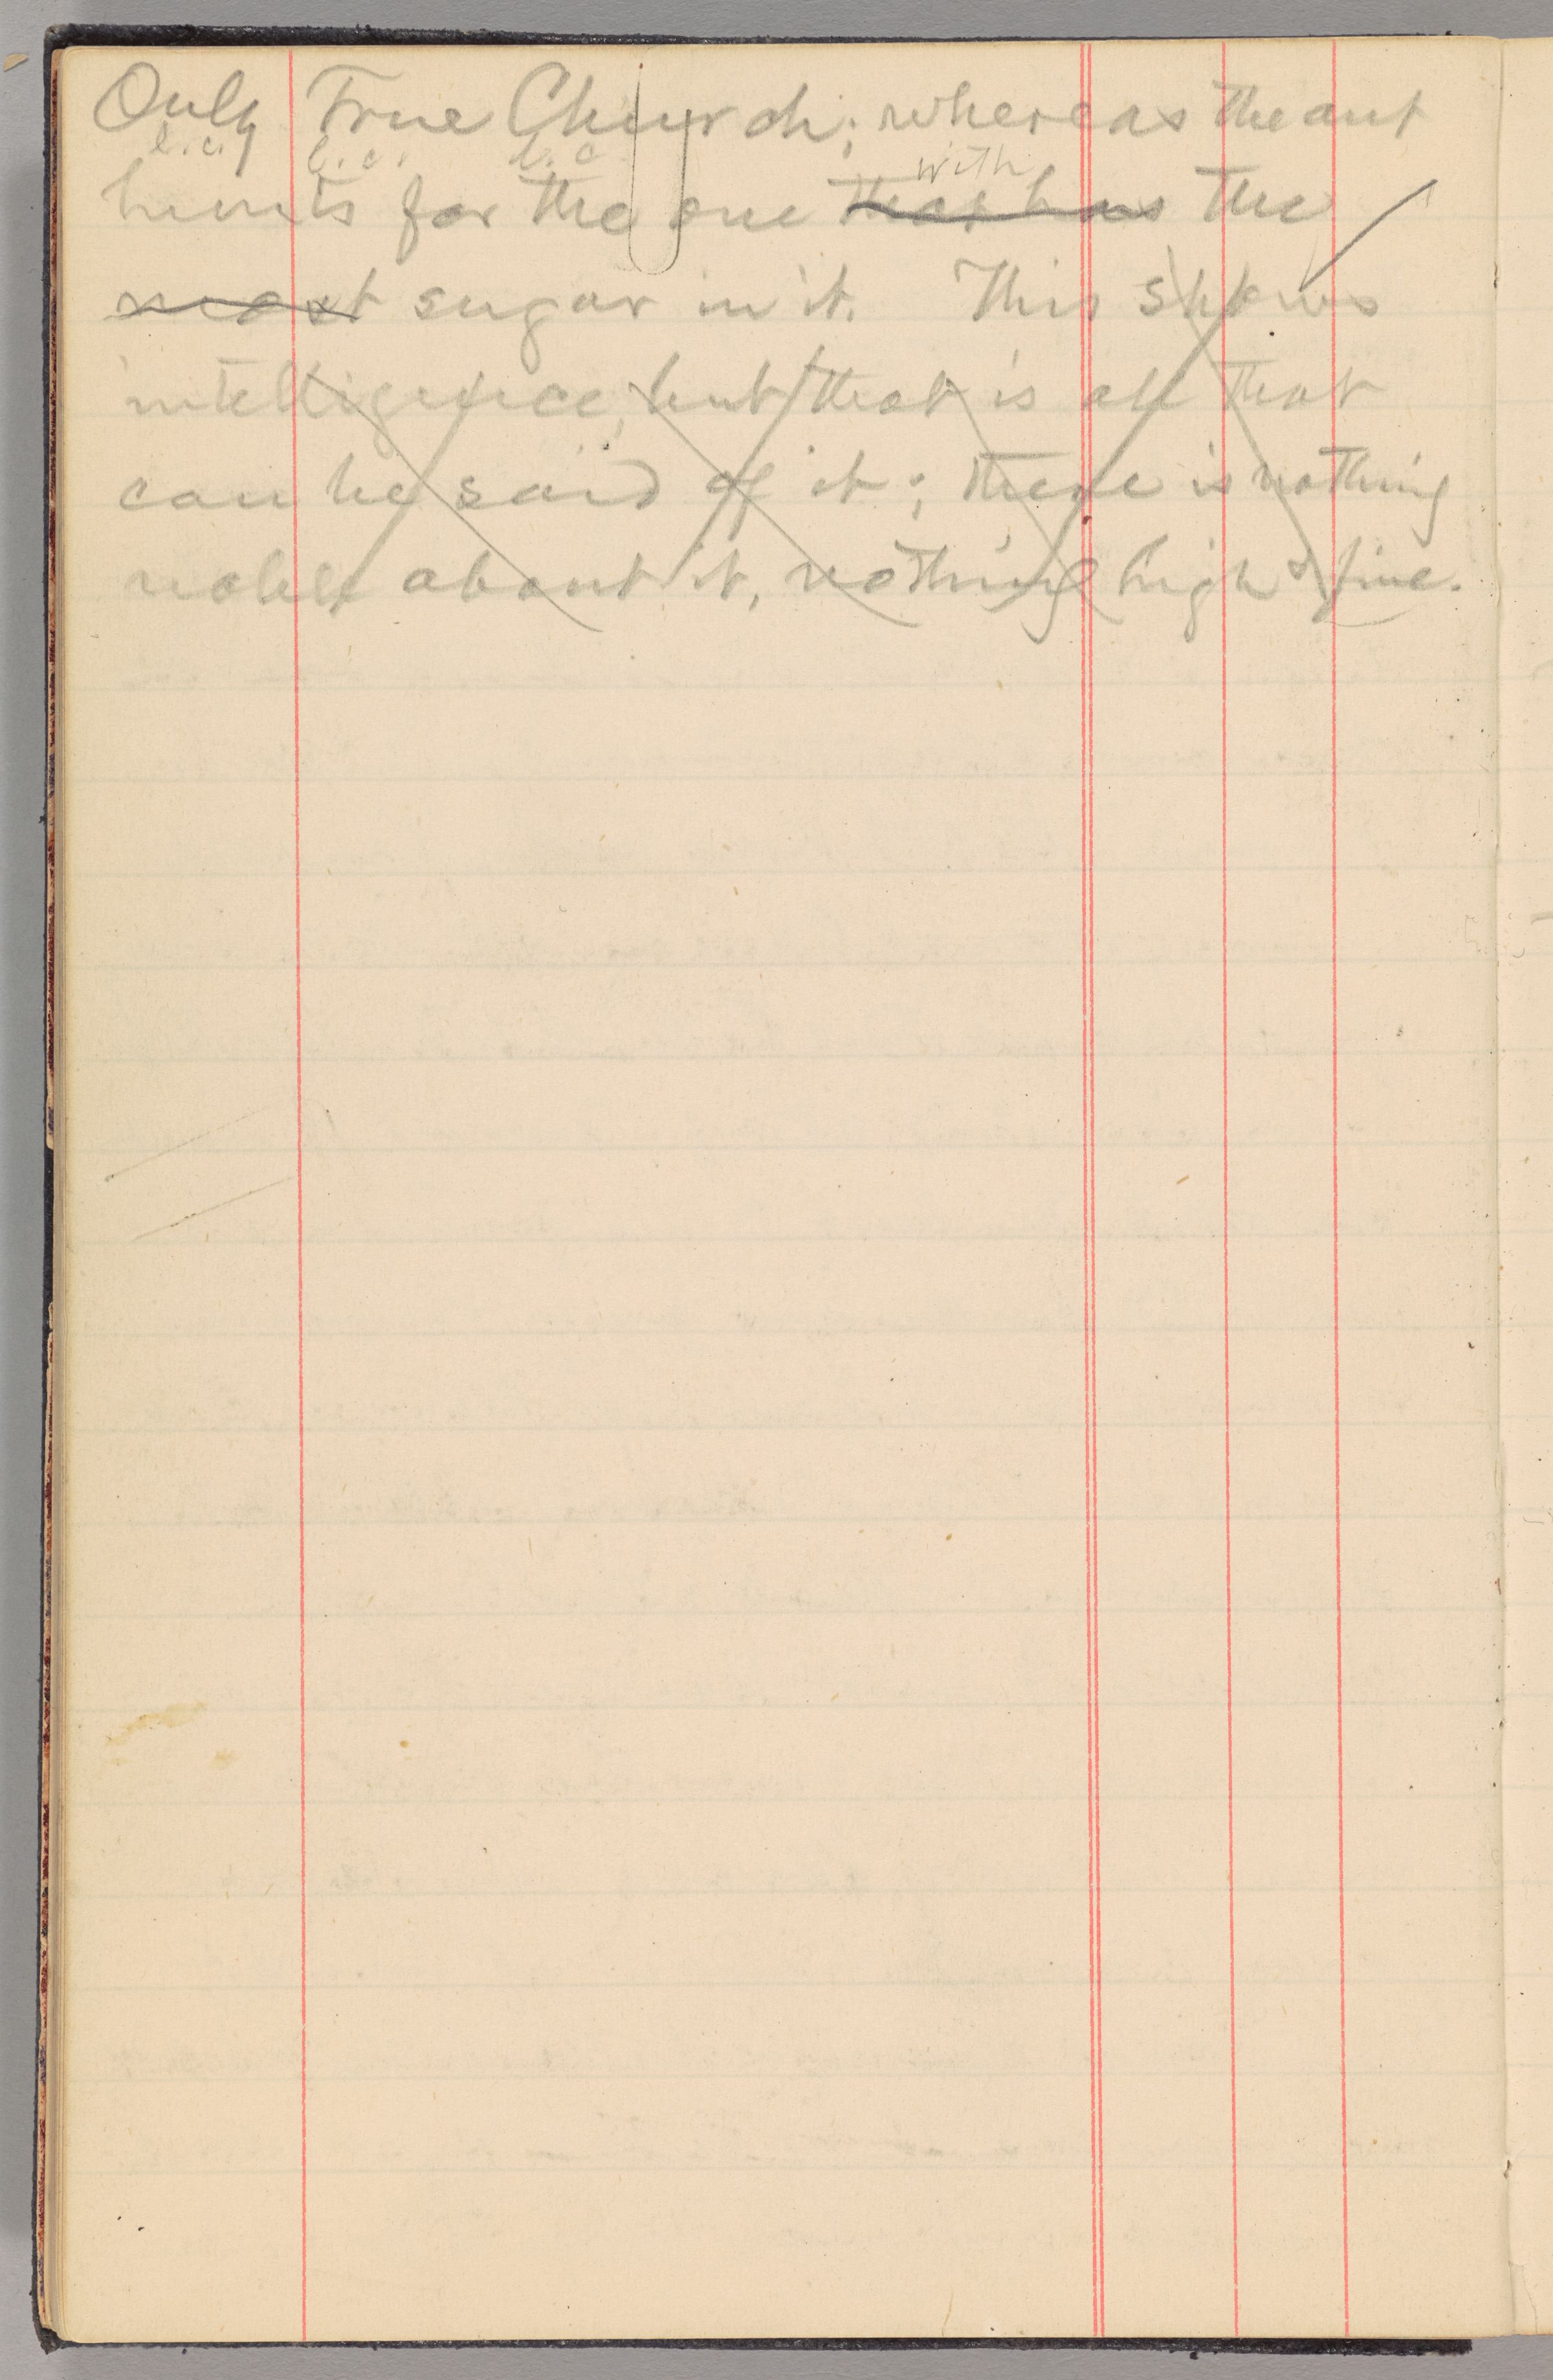 Only True Church; whereas the ant
l.c. l.c. l.c
with
hunts for the one that has the
most sugar in it. This shows
intelligence, but that is all that
can be said of it; there is nothing
noble about it, nothing high & fine.